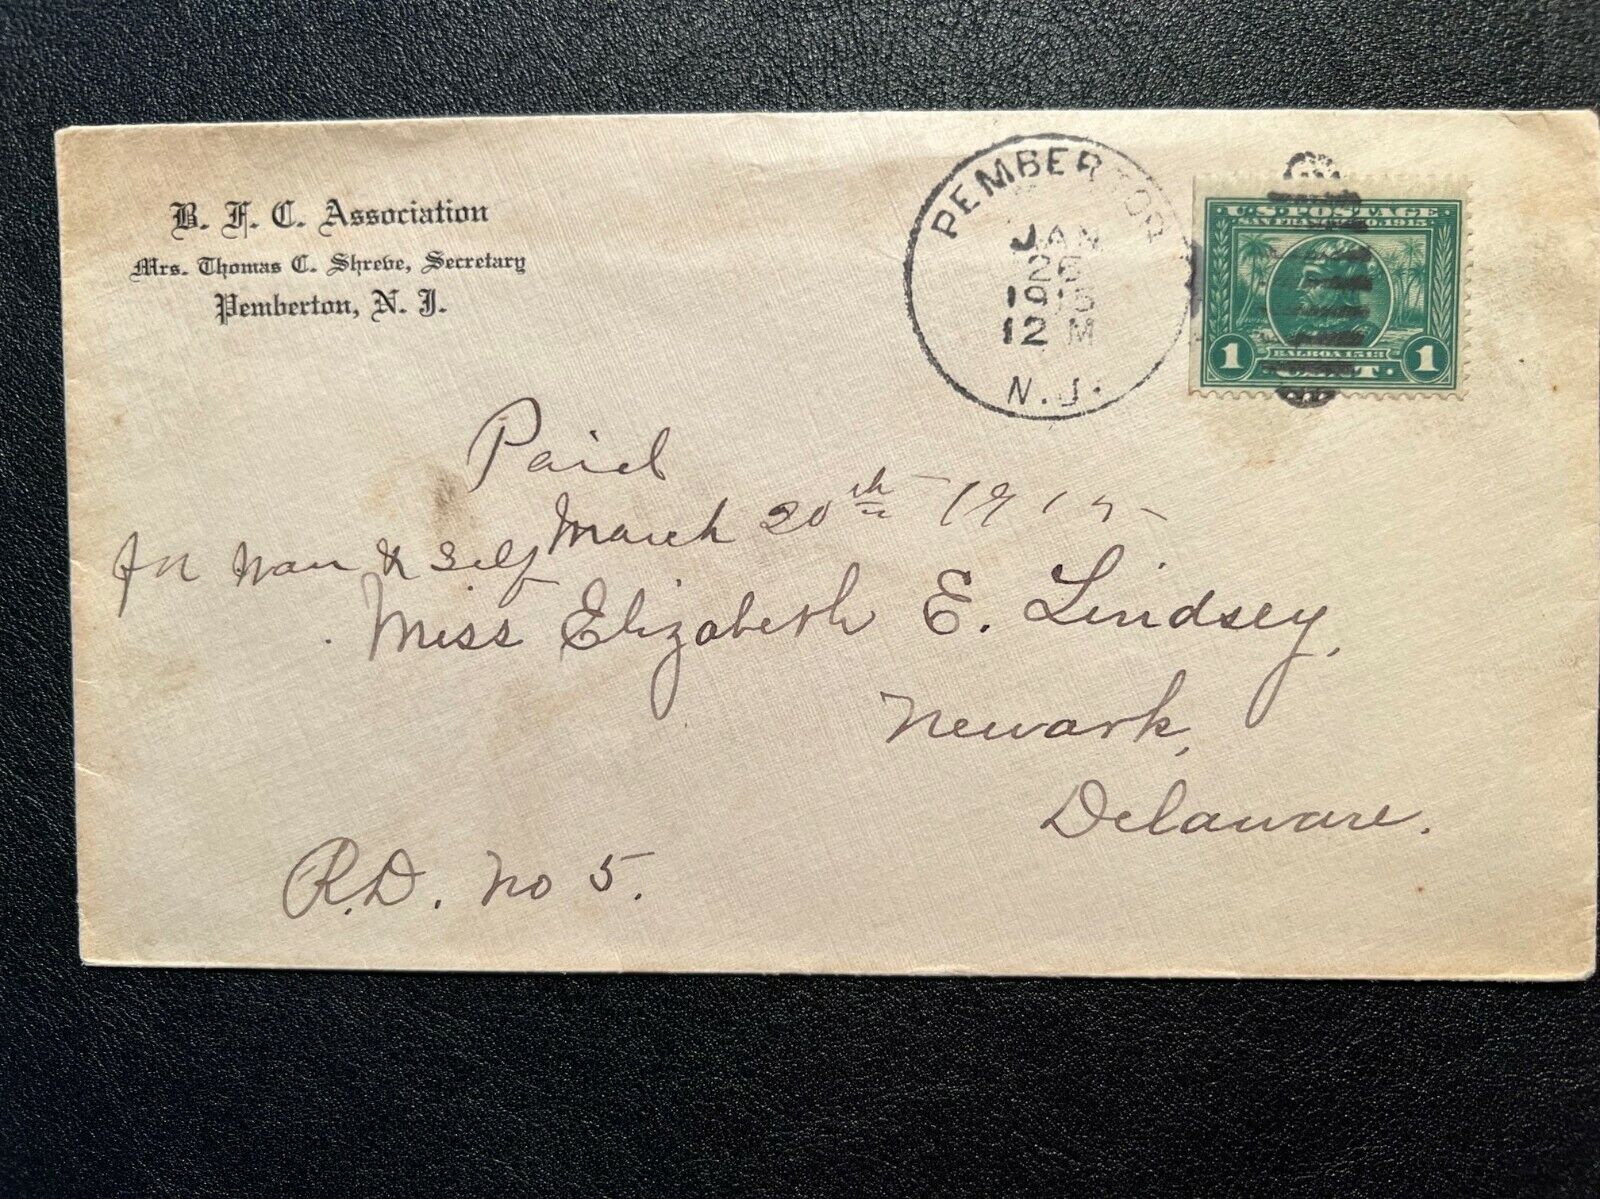 B. F. C. Association
Mrs. Thomas C. Shreve, Secretary
Pemberton, N. J.
PEMBERTON
JAN
26
1915
12 M
N.J.
U.S. POSTAGE
SAN FRANCISCO, 1915
BALBOA 1513
1 CENT 1
Paid
March 20th - 1915 -
for & Self
Miss Elizabeth E. Lindsey,
Newark,
Delaware.
R.D. No 5.